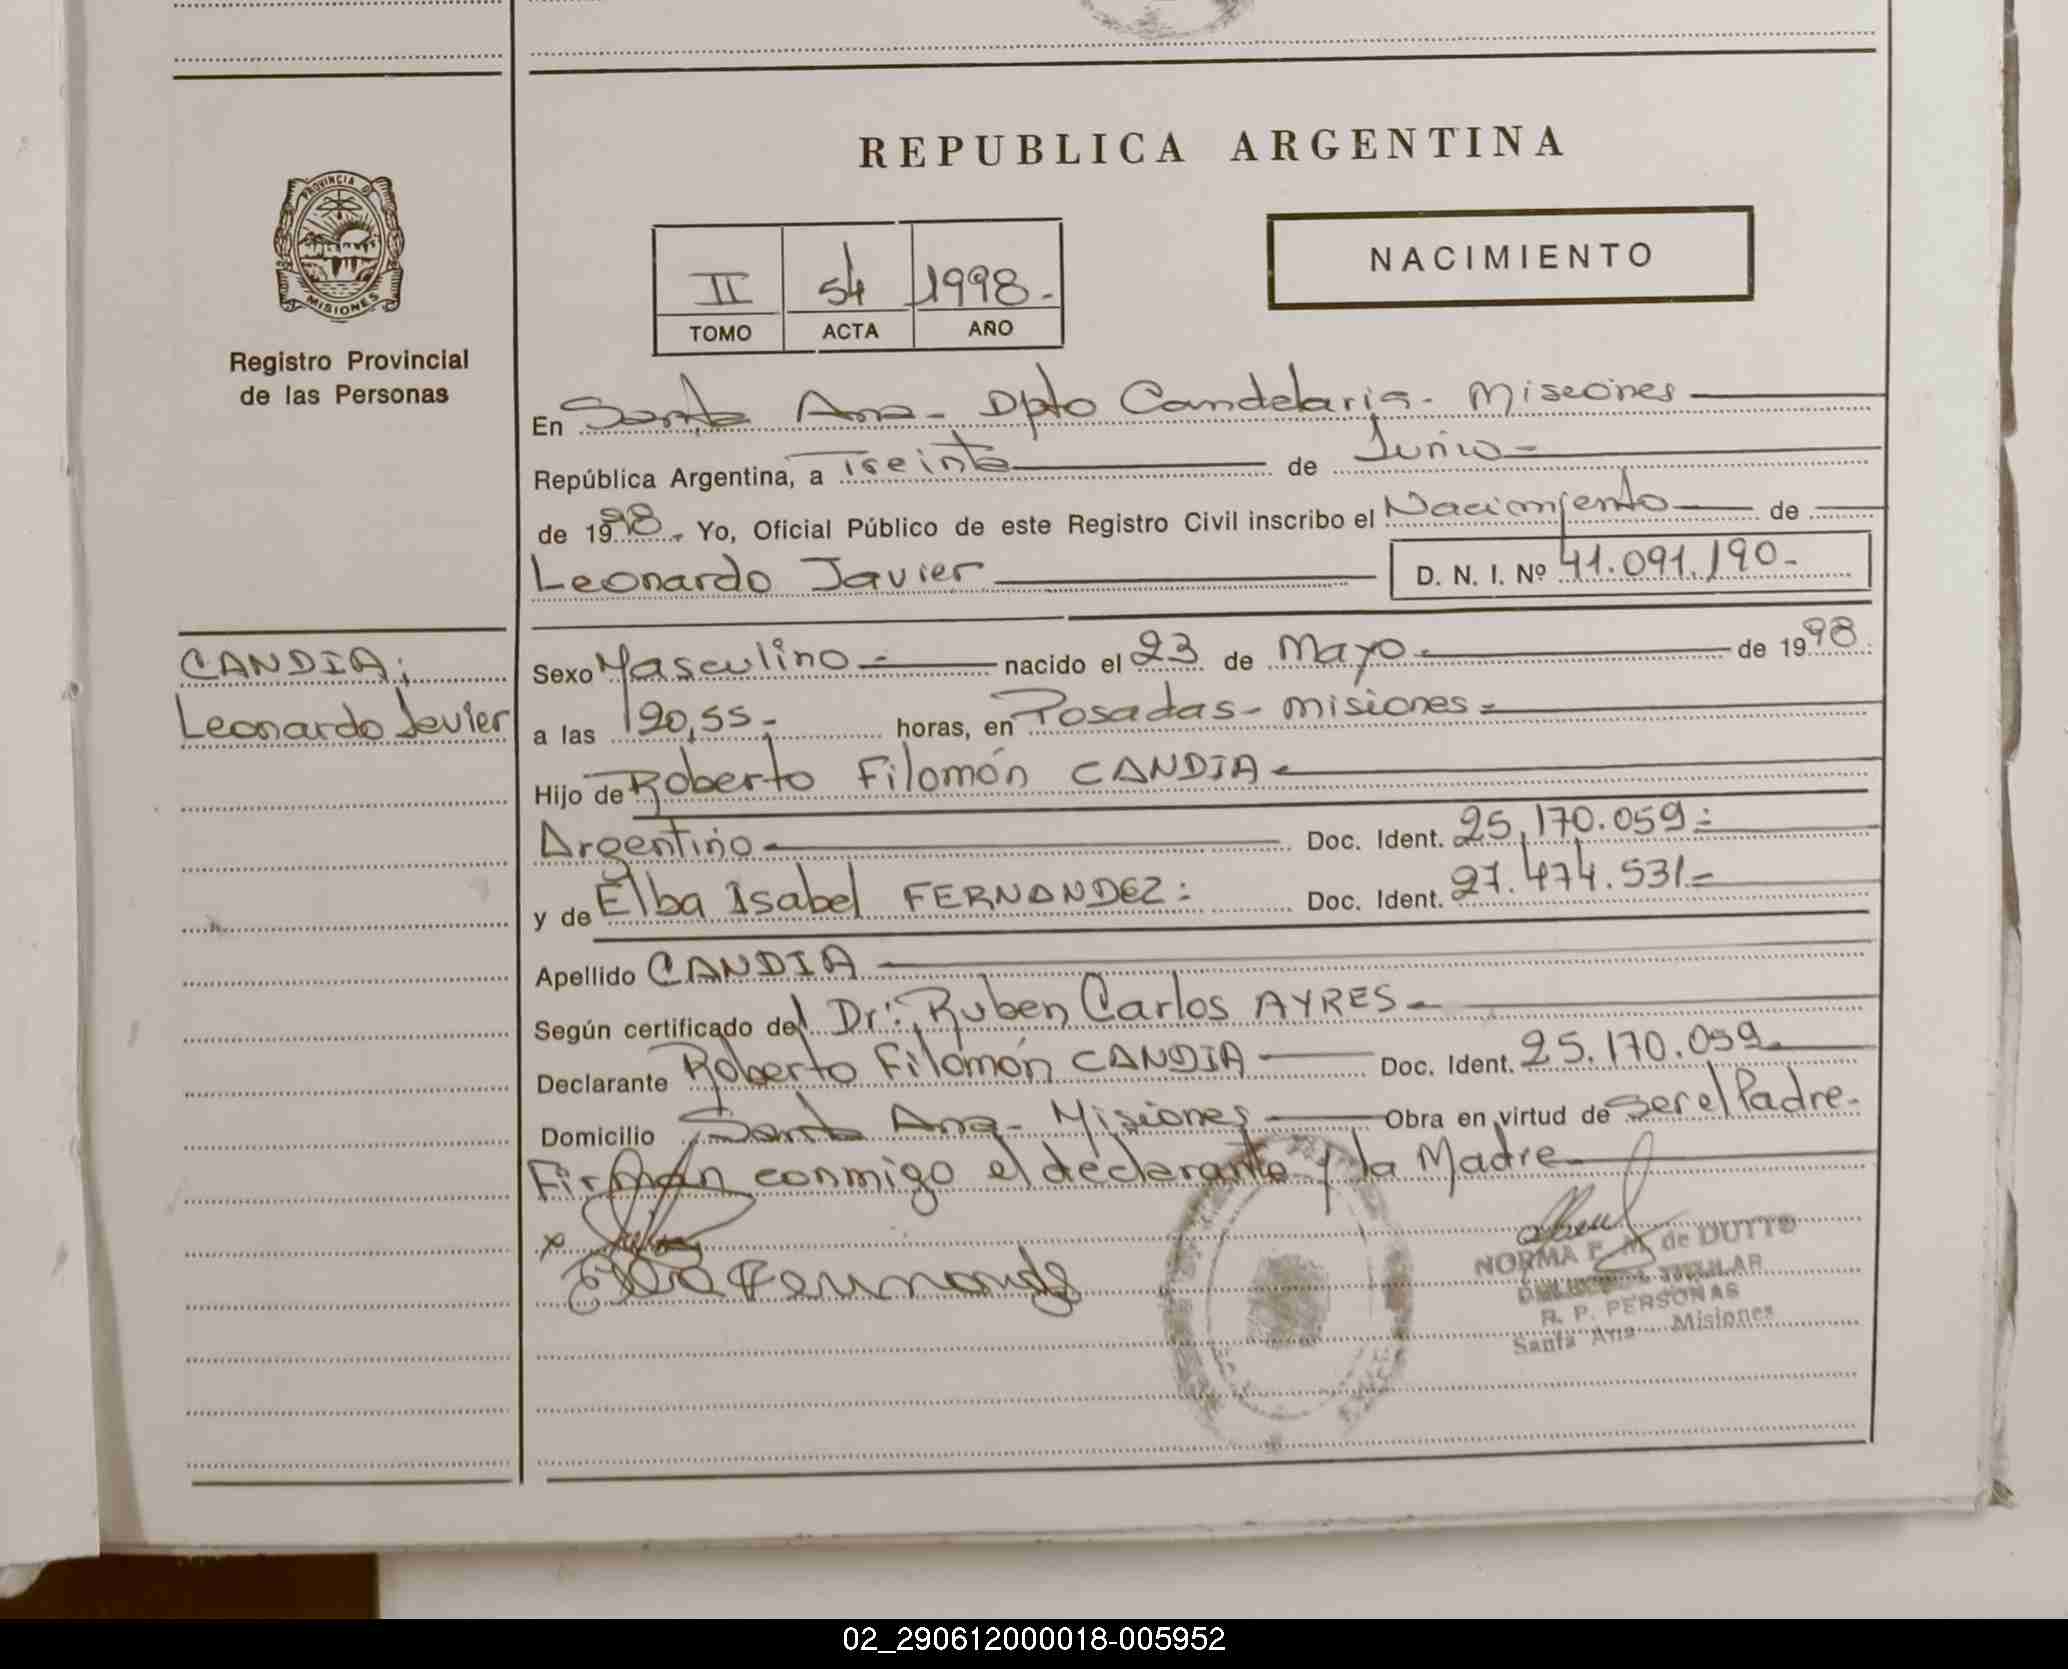 REPUBLICA ARGENTINA
PROVINCIA DE
MISIONES
Registro Provincial
de las Personas
II 54 1998.-
TOMO ACTA AÑO
NACIMIENTO
En Santa Ana- Dpto Candelaria- Misiones
República Argentina, a Treinta de Junio-
de 1998. Yo, Oficial Público de este Registro Civil inscribo el Nacimiento de
Leonardo Javier D. N. I. Nº 41.091.190-
CANDIA;
Leonardo Javier
Sexo Masculino- nacido el 23 de Mayo- de 1998
a las 20,55- horas, en Posadas- misiones-
Hijo de Roberto Filomón CANDIA-
Argentino- Doc. Ident. 25.170.059=
y de Elba Isabel FERNANDEZ: Doc. Ident. 27.474.531.-
Apellido CANDIA
Según certificado del Dr: Ruben Carlos AYRES-
Declarante Roberto Filomón CANDIA Doc. Ident. 25.170.059.
Domicilio Santa Ana- Misiones Obra en virtud de ser el Padre-
Firman conmigo el declarante y la Madre-
x
Elba Fernande
NORMA F. M. de DUTTO
TITULAR
R. P. PERSONAS
Santa Ana - Misiones
02_290612000018-005952